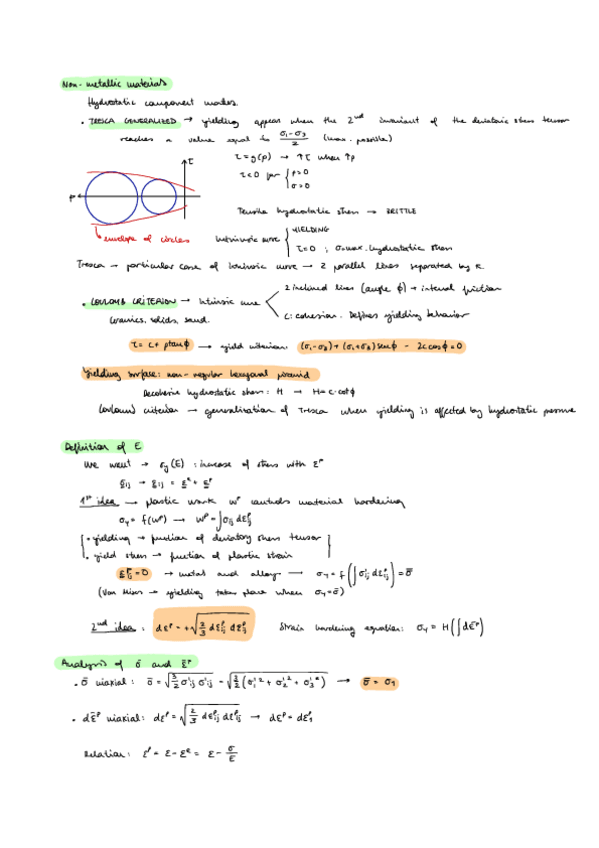 Non-metallic materials
Hydrostatic component modes.
• TRESCA GENERALIZED → yielding appear when the 2nd invariant of the deviatoric stress tensor
reaches a value equal to (σ1-σ3)/2 (max. possible)
τ = g(p) → ↑τ when ↑p
τ<0 for { p>0
σ>0
τ
p
Tensile hydrostatic stress → BRITTLE
envelope of circles
Intrinsic curve { YIELDING
τ=0 ; σ max. hydrostatic stress
Tresca → particular case of intrinsic curve → 2 parallel lines separated by k
• COULOMB CRITERION → Intrinsic curve
2 inclined lines (angle ϕ) → internal friction
c: cohesion. Defines yielding behavior
Ceramics, solids, sand.
τ = c + p tanϕ → yield criterion (σ1-σ3)+(σ1+σ3) senϕ - 2c cosϕ = 0
Yielding surface: non-regular hexagonal piramid
hydrostatic stress: H → H = c·cotϕ
Coulomb criterion → generalization of Tresca when yielding is affected by hydrostatic pressure
Definition of E
We want → σy(E) : increase of stress with εp
εij → εij = εe + εp
1st idea → plastic work wp controls material hardening
σy = f(wp) → wp = ∫σij dεpij
• yielding → function of deviatory stress tensor
• yield stress → function of plastic strain
εpij = 0 → metals and alloys → σy = f(∫σ'ij dεpij) = σ̄
(Von Mises → yielding takes place when σy=σ̄)
2nd idea : dεp = +√(2/3 dεpij dεpij)
Strain hardening equation: σy = H(∫dε̄p)
Analysis of σ̄ and ε̄p
• σ̄ uiaxial : σ̄ = √(3/2 σ'ij σ'ij) = √(3/2 (σ1'2 + σ2'2 + σ3'2)) → σ̄ = σ1
• dε̄p uiaxial: dεp = √(2/3 dεpij dεpij) → dεp = dεp1
Relation: εp = ε - εe = ε - σ/E